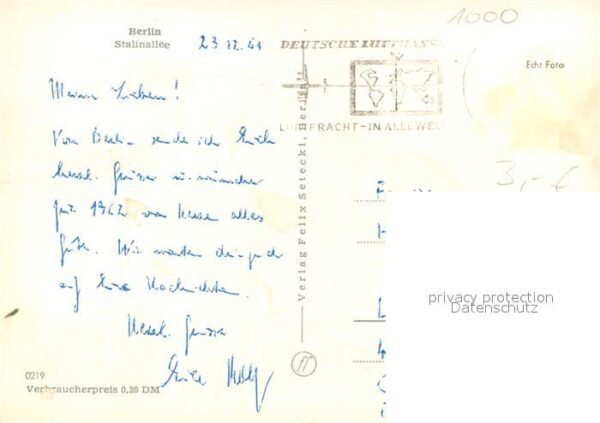 Berlin
Stalinallee
23.12.61
1000
DEUTSCHE LUFTHANSA
LUFTFRACHT-IN ALLE WELT
Echt Foto
Meine Lieben!
Von Berlin sende ich Euch
herzl. Grüsse u. wünsche
für 1962 von Herzen alles
Gute. Wir warten dringend
auf Eure Nachrichten.
Herzl. Grüsse
Verlag Felix Setecki, Berlin
3,- €
privacy protection
Datenschutz
0219
Verbraucherpreis 0,20 DM